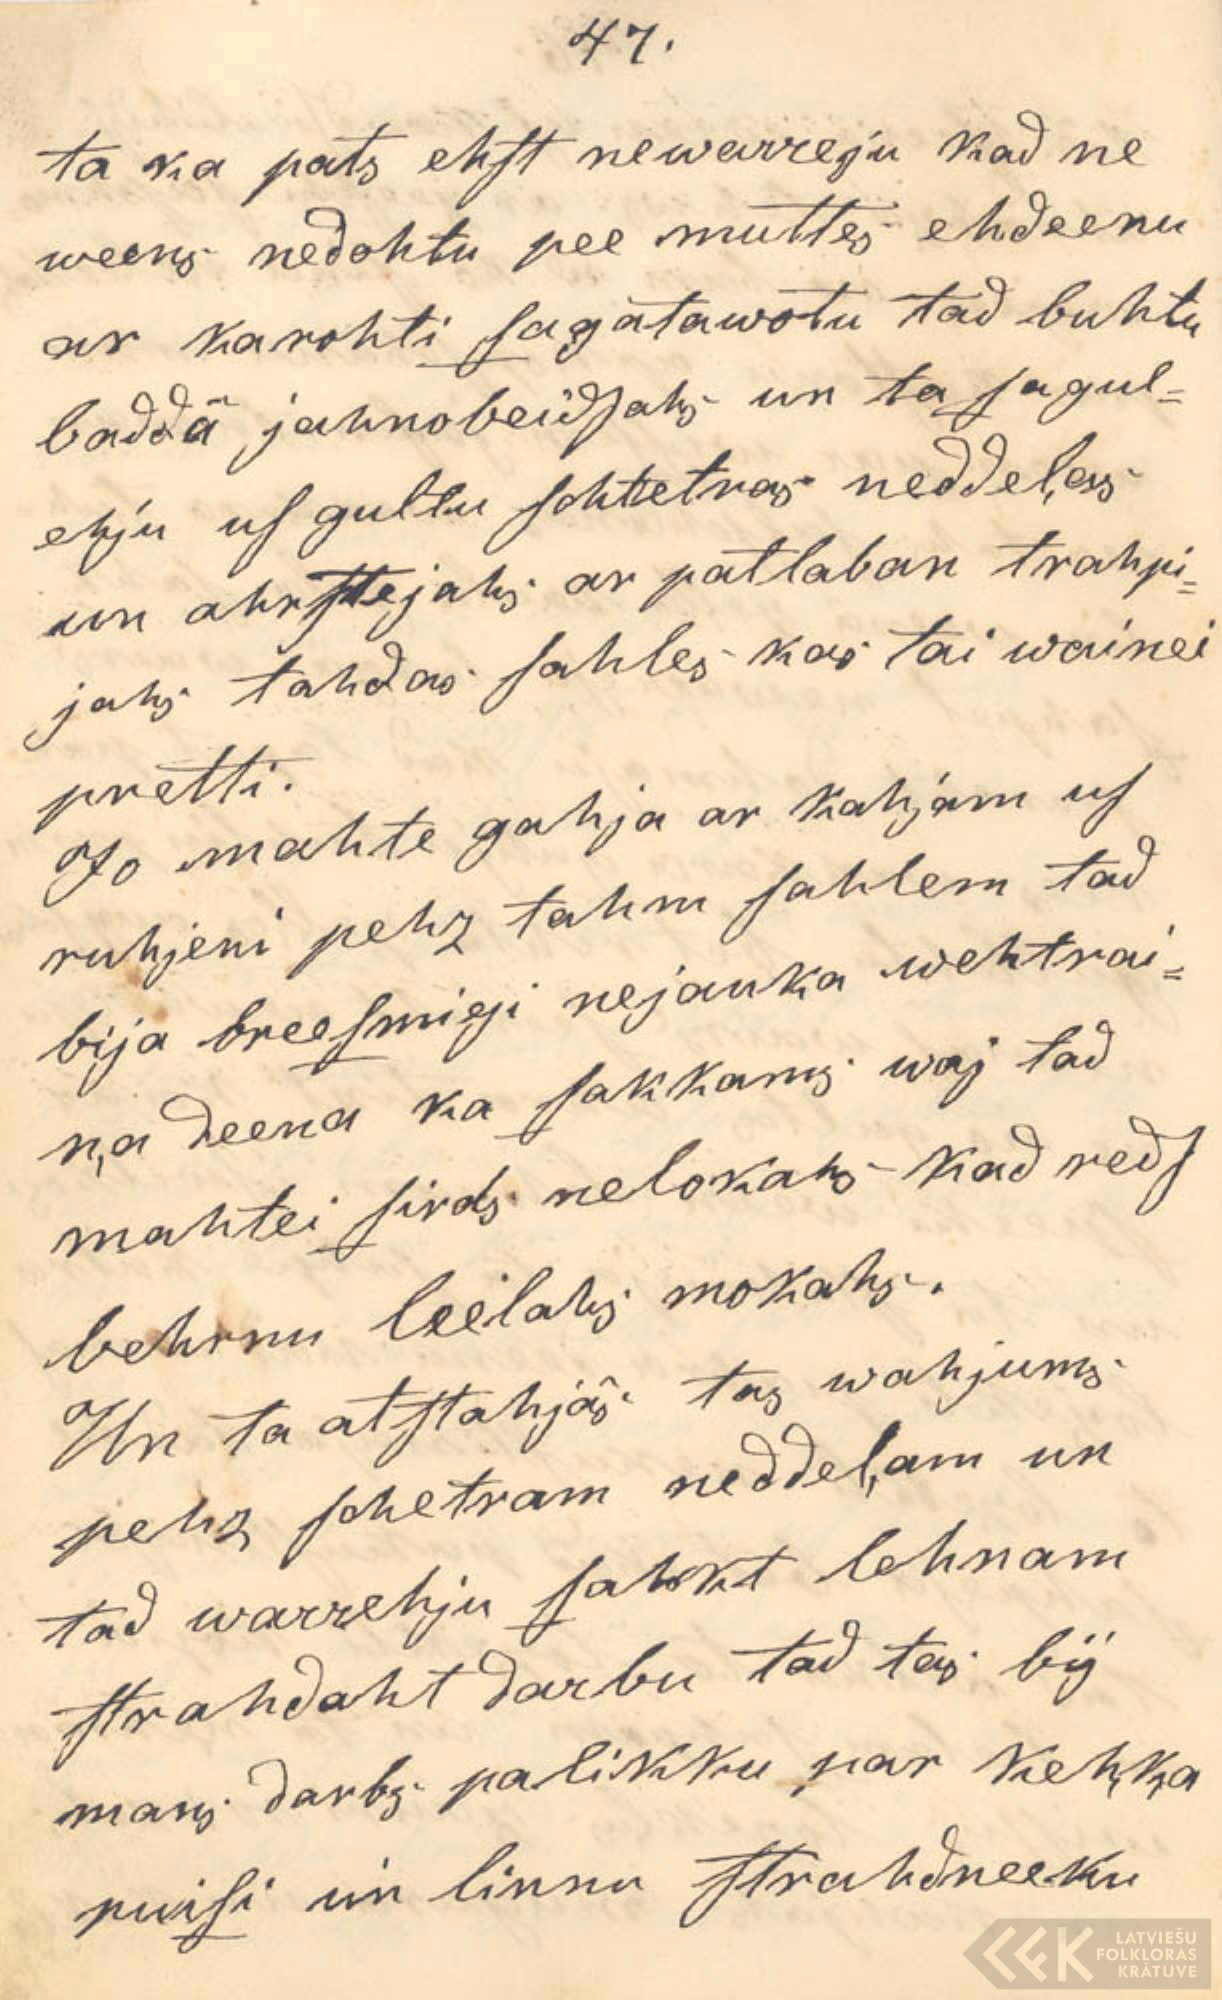 47.
ta ka pats ehst newarreju kad ne
weens nedohtu pee muttes ehdeenu
ar karohti sagatawotu tad buhtu
baddâ jahnobeidsahs un ta sagul=
ehju us gultu schtetras neddeļas
un ahrstejahs ar patlaban trahpi=
jahs tahdas sahles kas tai wainei
pretti.
Jo mahte gahja ar kahjam us
ruhjeni pehz tahm sahlem tad
bija breesmigi nejauka wehtrai=
ņa deena ka sakkams waj tad
mahtei sirds nelokahs kad reds
behrnu leelahs mokahs.
Un ta atstahjâs tas wahjums
pehz schetram neddeļam un
tad warrehju sahkt lehnam
strahdaht darbu tad tas bij
mans darbs palikku par kehķa
puisi un linnu strahdneeku
LATVIEŠU
FOLKLORAS
KRĀTUVE